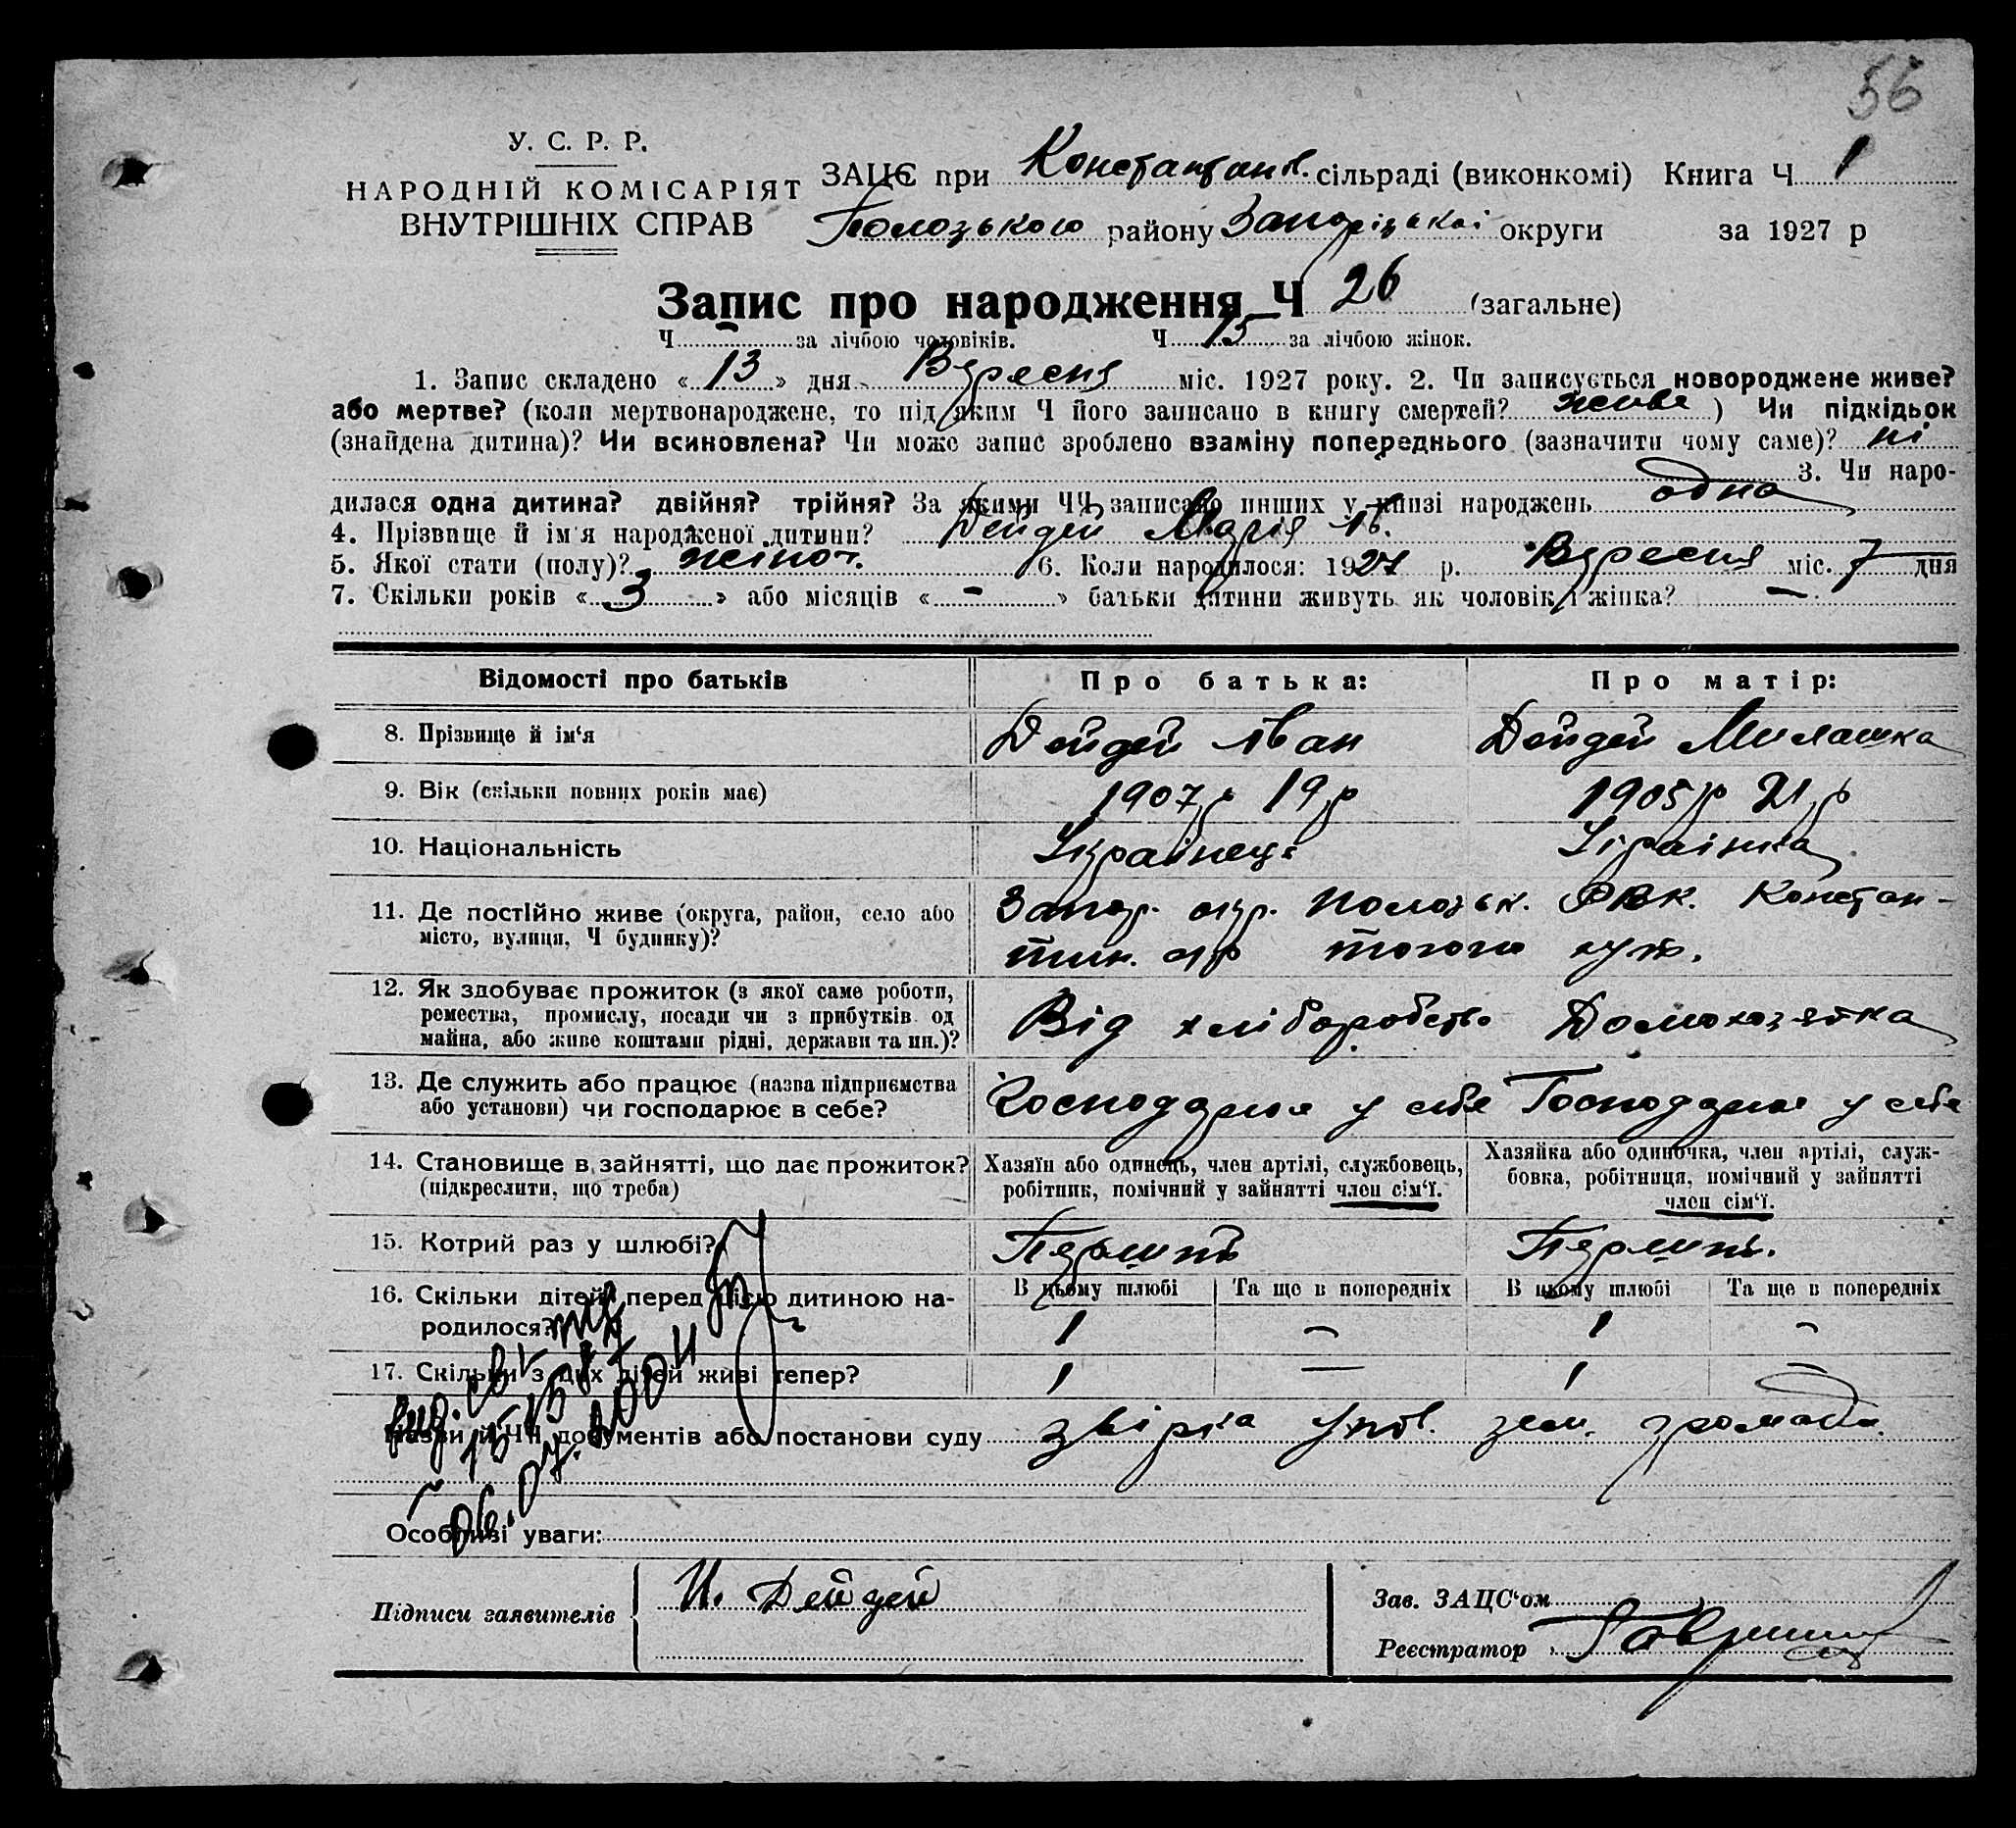 56
У. С. Р. Р.
НАРОДНІЙ КОМІСАРІЯТ
ВНУТРІШНІХ СПРАВ
ЗАЦС при Константин. сільраді (виконкомі) Книга Ч 1
Полозького району Запорізької округи за 1927 р
Запис про народження Ч 26 (загальне)
Ч - за лічбою чоловіків. Ч 15 за лічбою жінок.
1. Запис складено « 13 » дня Вересня міс. 1927 року. 2. Чи записується новороджене живе?
або мертве? (коли мертвонароджене, то під яким Ч його записано в книгу смертей? живе ) Чи підкідьок
(знайдена дитина)? Чи всиновлена? Чи може запис зроблено взаміну попереднього (зазначити чому саме)? ні
3. Чи наро-
дилася одна дитина? двійня? трійня? За якими ЧЧ записано инших у книзі народжень одна
4. Прізвище й ім'я народженої дитини? Дейдей Марія Ів.
5. Якої стати (полу)? жіноч. 6. Коли народилося: 1927 р. Вересня міс. 7 дня
7. Скільки років « 3 » або місяців « - » батьки дитини живуть як чоловік і жінка? -
Відомості про батьків Про батька: Про матір:
8. Прізвище й ім'я Дейдей Іван Дейдей Милашка
9. Вік (скільки повних років має) 1907 р 19 р 1905 р 21 р
10. Національність Українець Українка
11. Де постійно живе (округа, район, село або Запор. окр. Полозьк. РВК. Констан-
місто, вулиця, Ч будинку)? тин. с/р
12. Як здобуває прожиток (з якої саме роботи,
ремества, промислу, посади чи з прибутків од
майна, або живе коштами рідні, держави та ин.)? Від хліборобства Домохозяйка
13. Де служить або працює (назва підприємства
або установи) чи господарює в себе? Господарює у себе Господарює у себе
14. Становище в зайнятті, що дає прожиток?
(підкреслити, що треба)
Хазяїн або одинець, член артілі, службовець,
робітник, помічний у зайнятті член сім'ї.
Хазяйка або одиночка, член артілі, служ-
бовка, робітниця, помічний у зайнятті
член сім'ї.
15. Котрий раз у шлюбі?
16. Скільки дітей перед цією дитиною на-
родилося?
В цьому шлюбі Та ще в попередніх В цьому шлюбі Та ще в попередніх
1 - 1 -
17. Скільки з цих дітей живі тепер? 1 - 1 -
Назви й ЧЧ документів або постанови суду звірка упов. зем. громади
Особливі уваги:
Підписи заявителів И. Дейдей
Зав. ЗАЦС'ом
Реєстратор